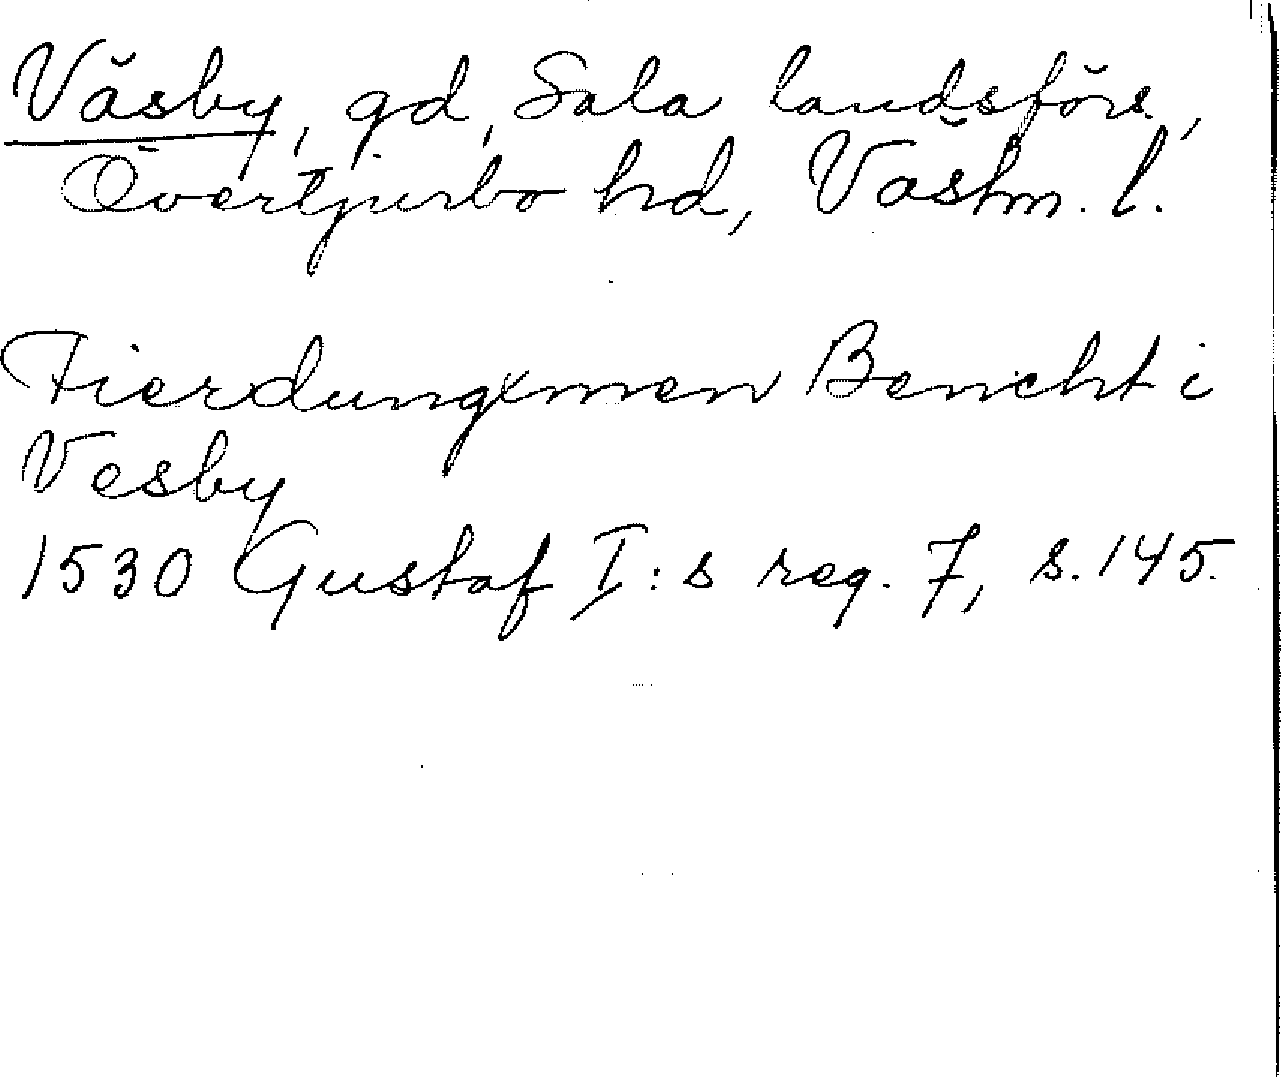 Väsby, gd, Sala landsförs.,
Övertjurbo hd, Västm. l.
Fierdungxmen Bencht i
Vesby
1530 Gustaf I:s reg. 7, s. 145.